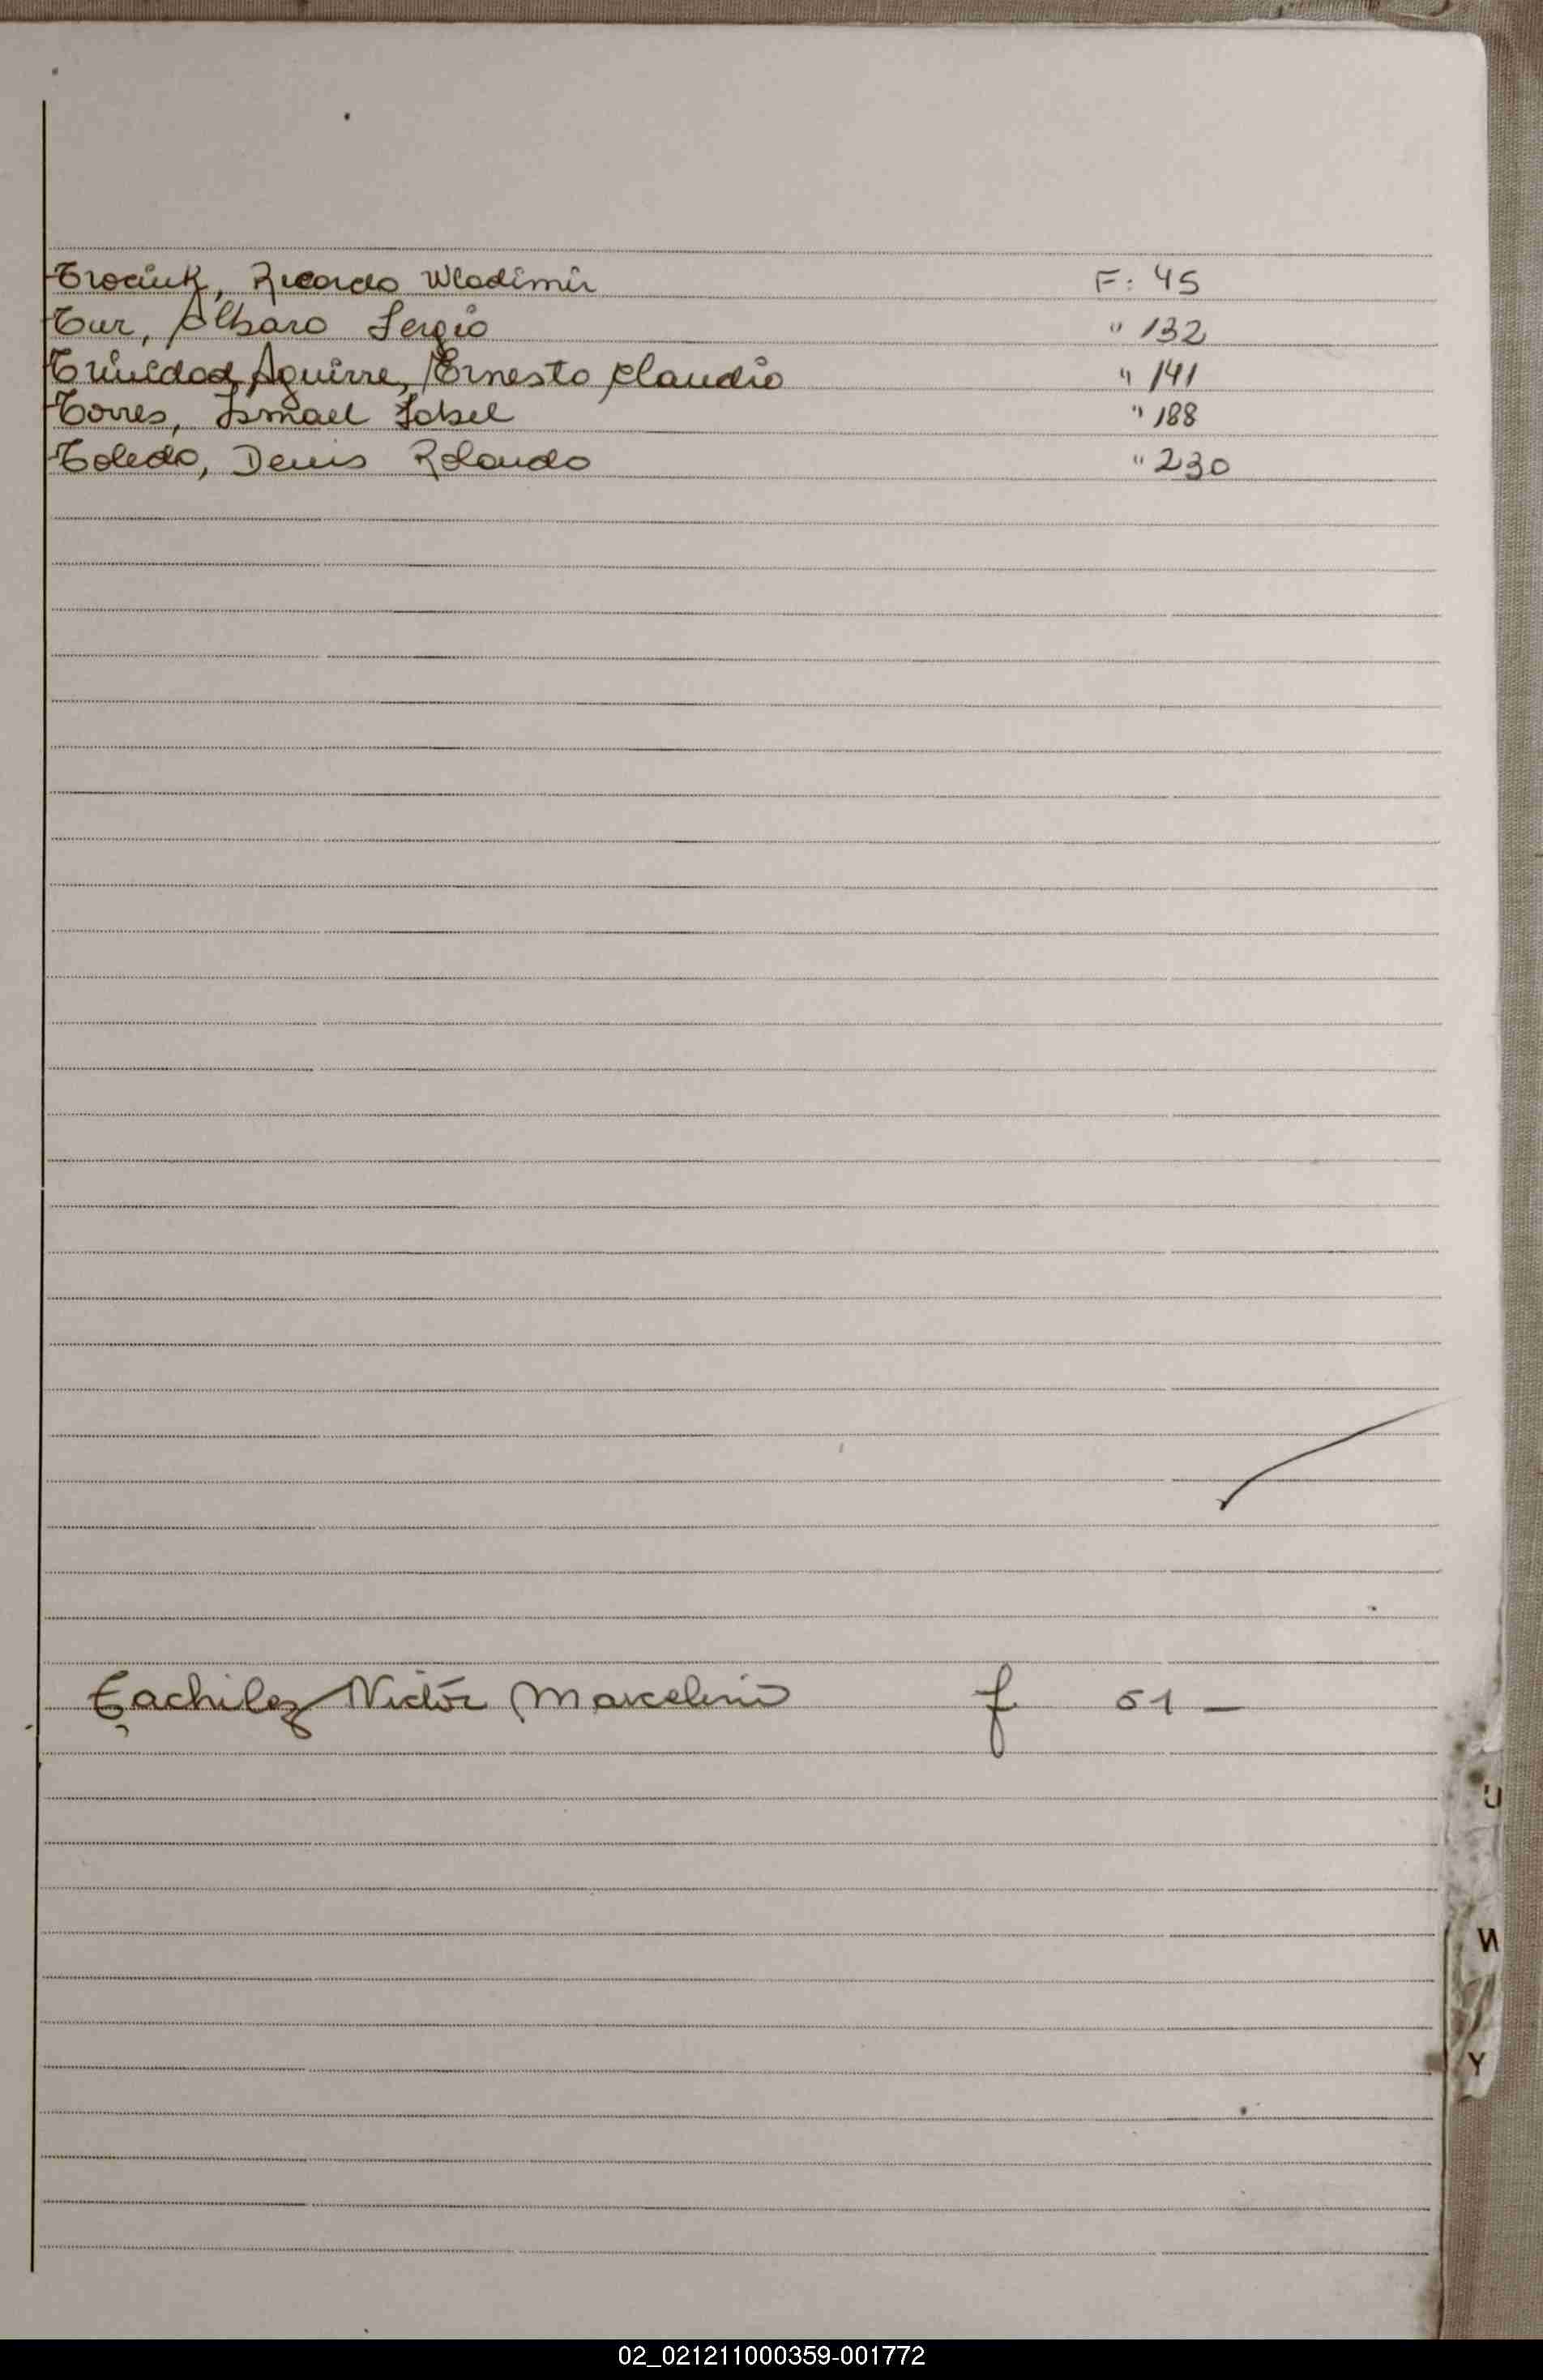 Trociuk, Ricardo Wladimir F: 45
Tur, Albaro Sergio " 132
Trinidad Aguirre, Ernesto Claudio " 141
Torres, Ismael " 188
Toledo, Denis Rolando " 230
Victor Marcelino f 51 —
U
W
Y
02_021211000359-001772